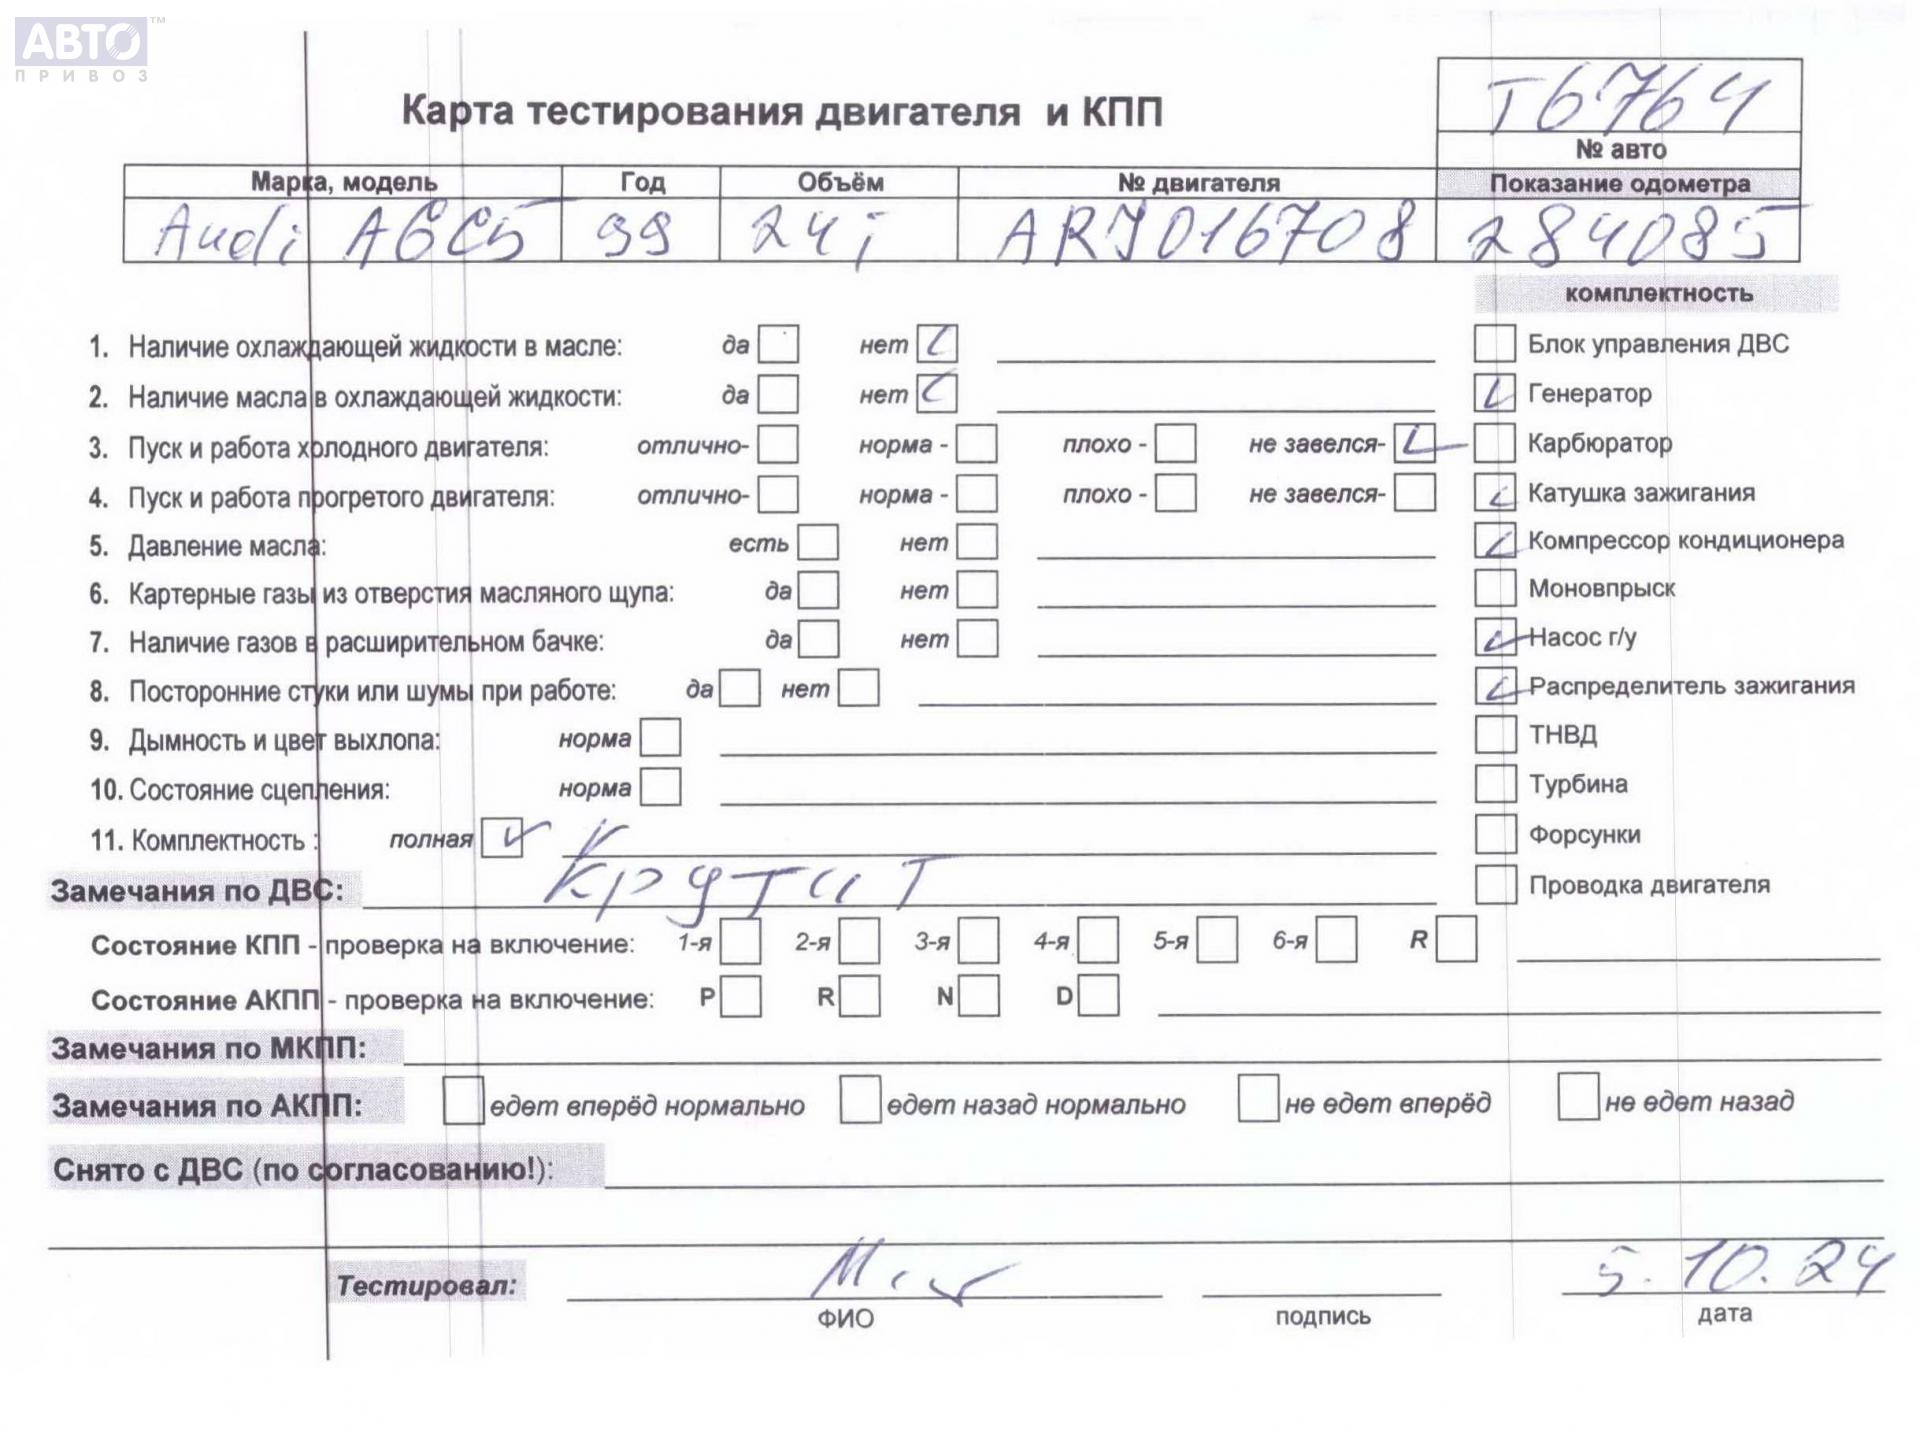 АВТО™
ПРИВОЗ
Т6764
Карта тестирования двигателя и КПП
№ авто
Марка, модель Год Объём № двигателя Показание одометра
Audi A6C5 99 24i ARJ016708 284085
комплектность
1. Наличие охлаждающей жидкости в масле: да нет Блок управления ДВС
2. Наличие масла в охлаждающей жидкости: да нет Генератор
3. Пуск и работа холодного двигателя: отлично- норма - плохо - не завелся- Карбюратор
4. Пуск и работа прогретого двигателя: отлично- норма - плохо - не завелся- Катушка зажигания
5. Давление масла: есть нет Компрессор кондиционера
6. Картерные газы из отверстия масляного щупа: да нет Моновпрыск
7. Наличие газов в расширительном бачке: да нет Насос г/у
8. Посторонние стуки или шумы при работе: да нет Распределитель зажигания
9. Дымность и цвет выхлопа: норма ТНВД
10. Состояние сцепления: норма Турбина
11. Комплектность : полная Форсунки
Замечания по ДВС: Крутит Проводка двигателя
Состояние КПП - проверка на включение: 1-я 2-я 3-я 4-я 5-я 6-я R
Состояние АКПП - проверка на включение: P R N D
Замечания по МКПП:
Замечания по АКПП: едет вперёд нормально едет назад нормально не едет вперёд не едет назад
Снято с ДВС (по согласованию!):
Тестировал: 5.10.24
ФИО подпись дата